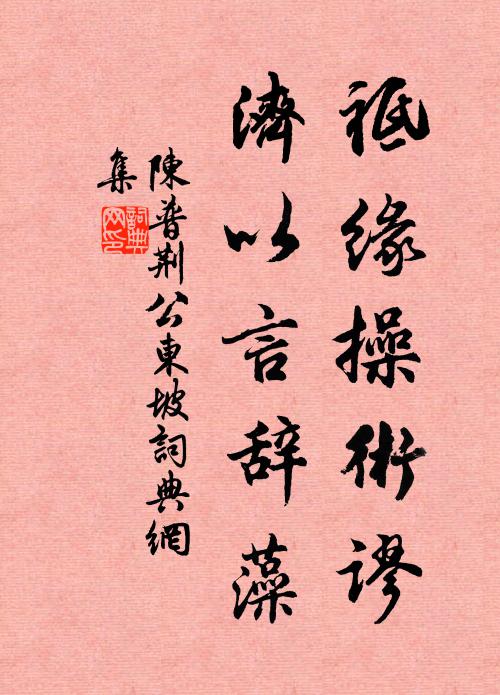 祗缘操術謬
濟以言辞藻
陳普荆公東坡詞典網
集
詞典網印